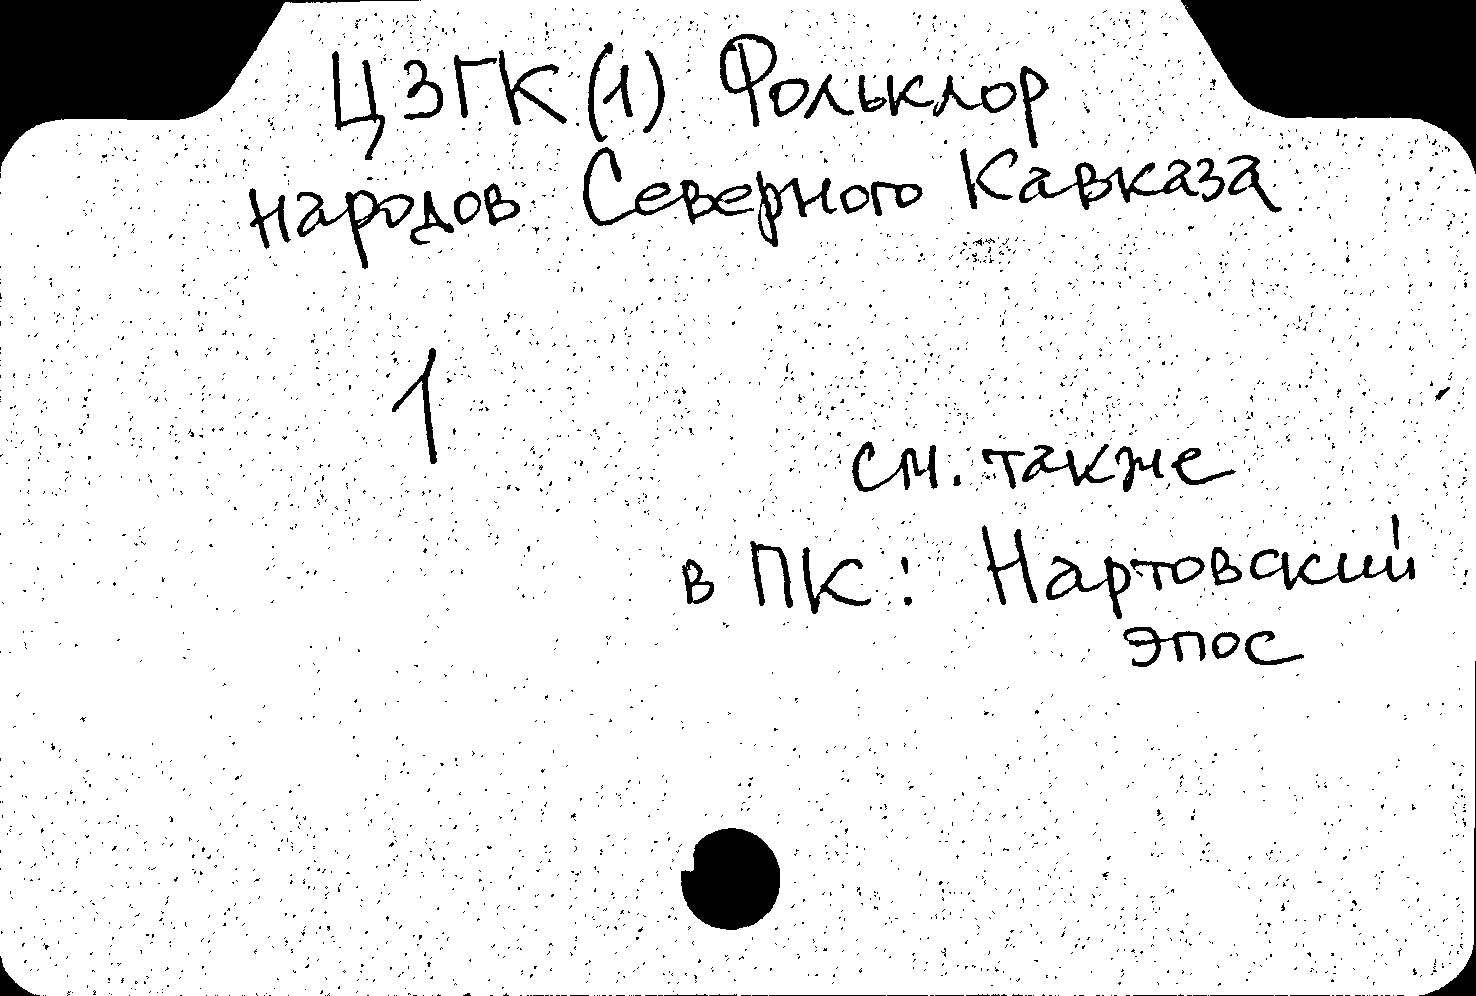 ЦЗГК(1) Фольклор
народов Северного Кавказа
1
см. также
в ПК: Нартовский
эпос